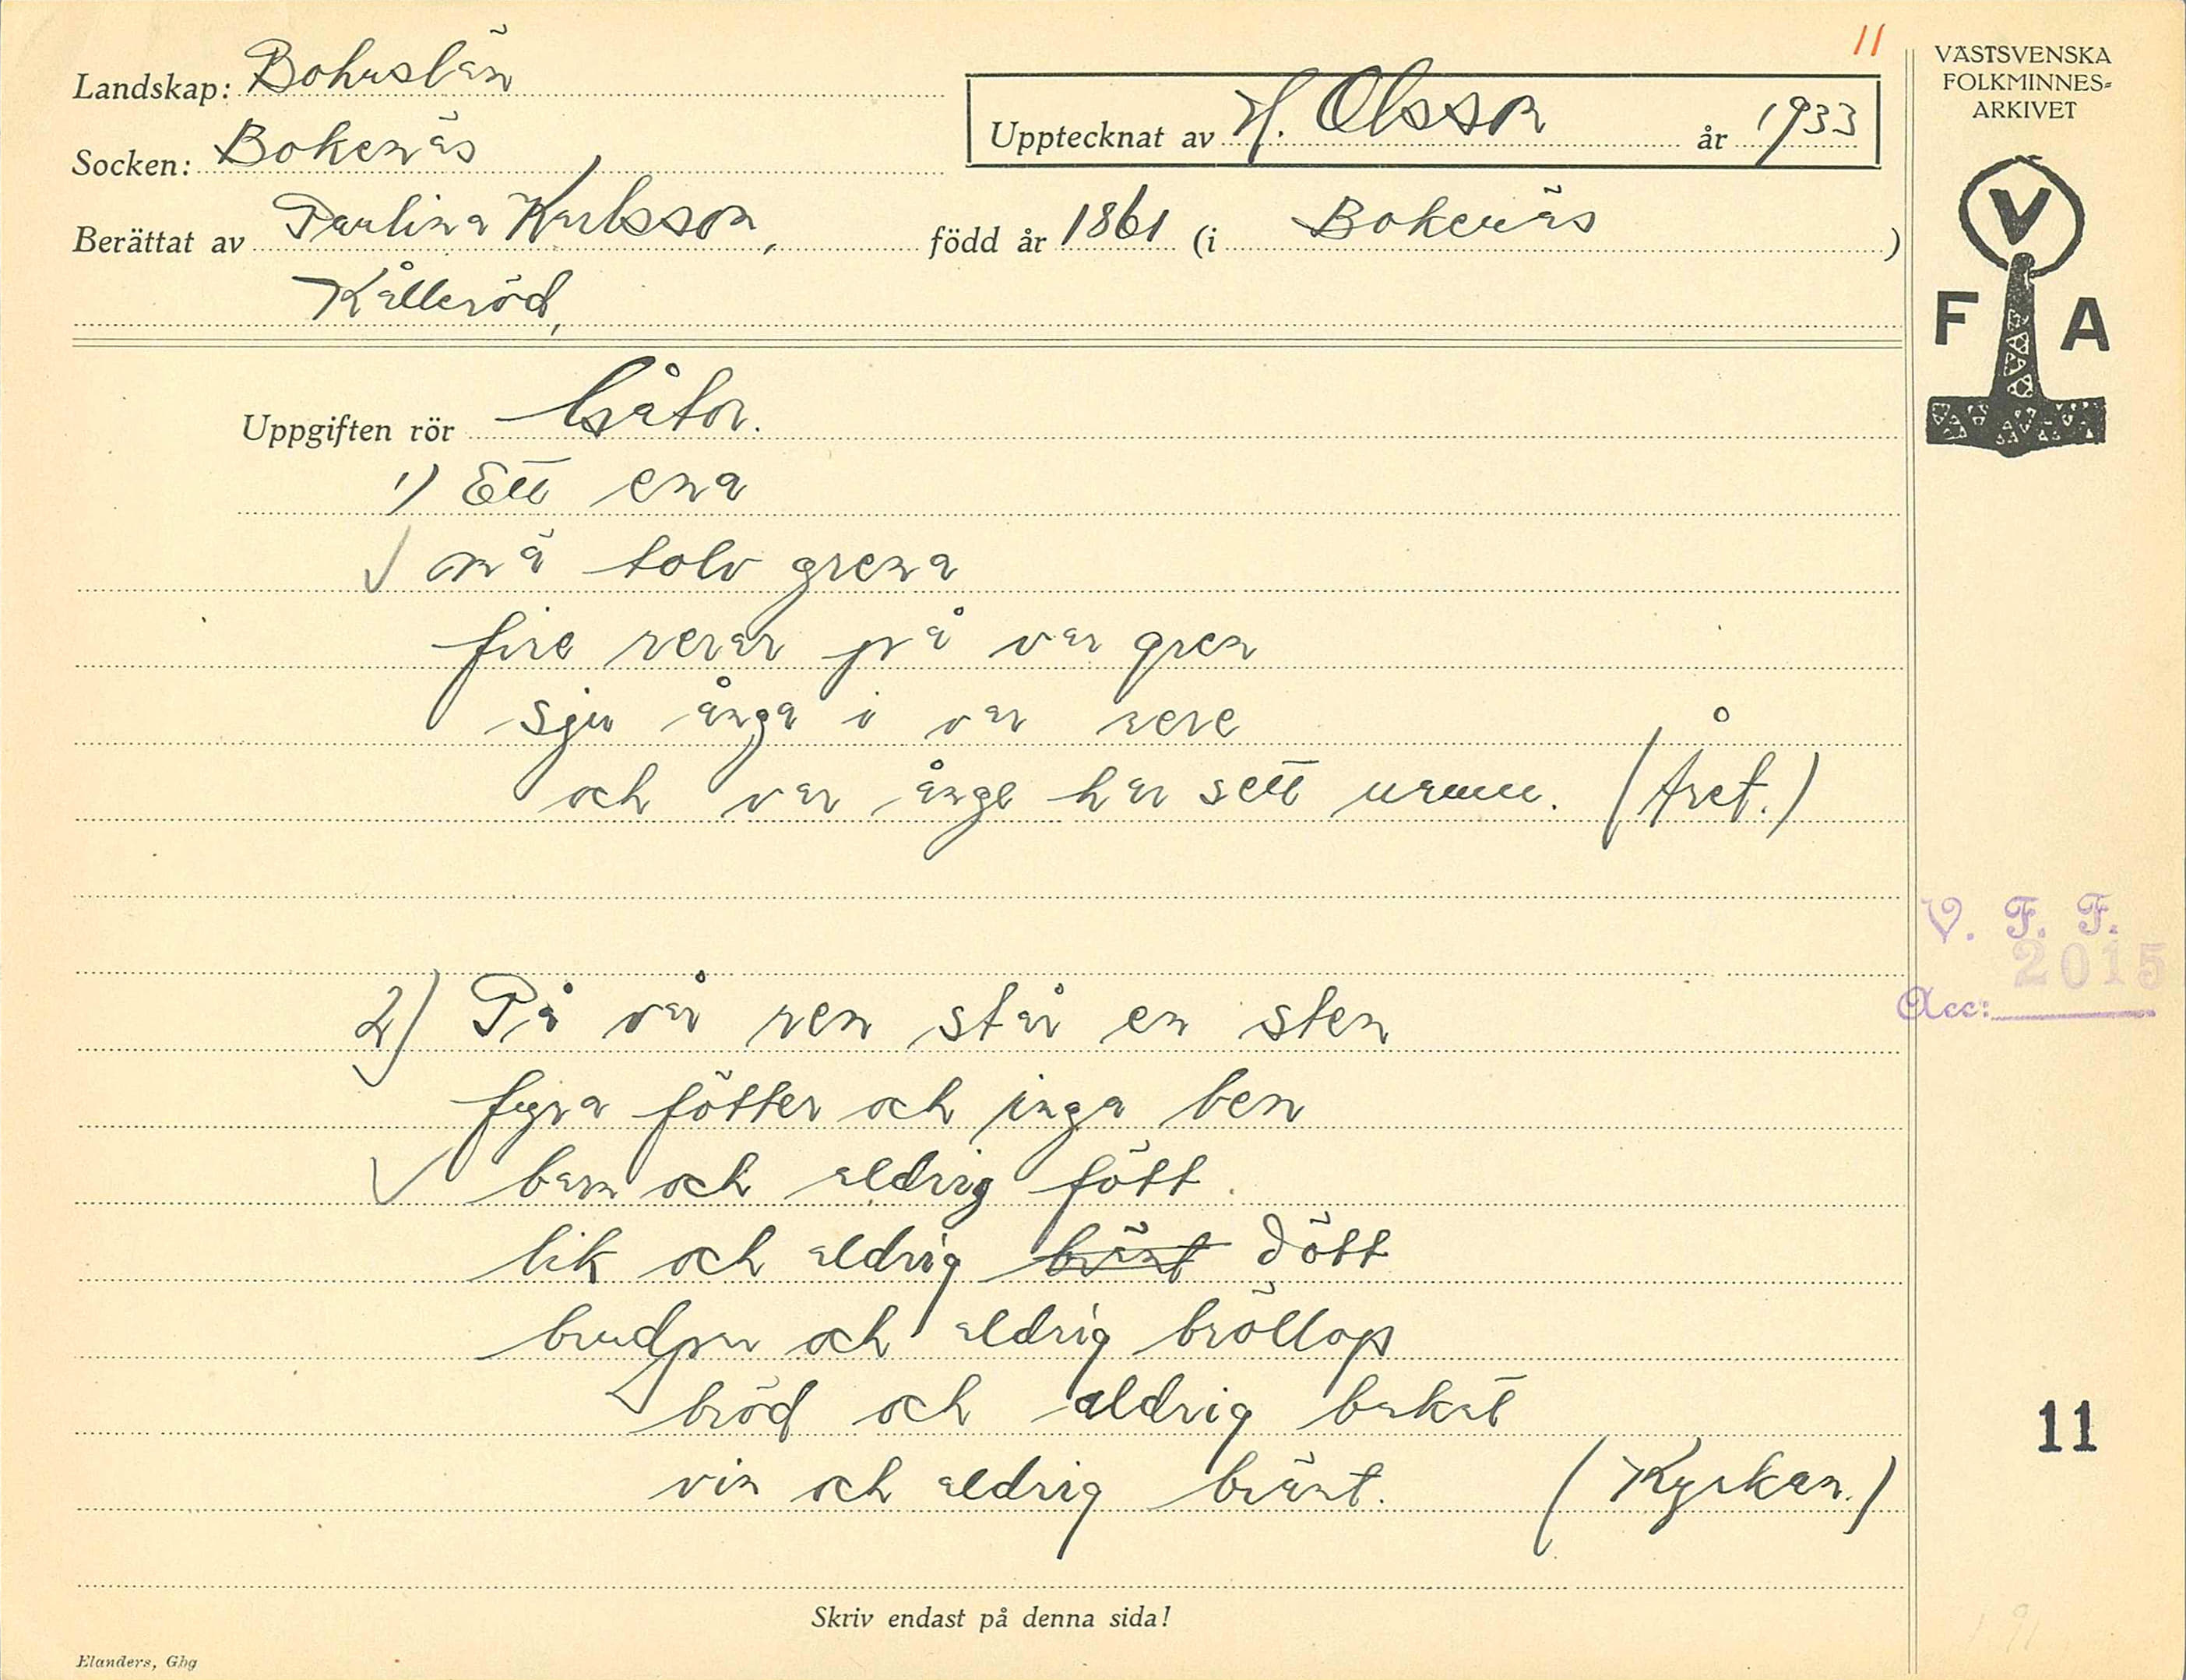 11
Landskap: Bohuslän
Socken: Bokenäs
Upptecknat av H. Olsson år 1933
Berättat av Paulina Karlsson, född år 1861 (i Bokenäs)
Kålleröd,
Uppgiften rör Gåtor.
1) Ett ena
mä tolv grena
fire rerer på var gren
sju ånga i var rere
och var ånge har sett namn. (Året.)
2) På vår ren står en sten
fyra fötter och inga ben
barn och aldrig fött
lik och aldrig bränt dött
brudpar och aldrig bröllop
bröd och aldrig bakat
vin och aldrig bränt. (Kyrkan.)
Skriv endast på denna sida!
Elanders, Gbg
VÄSTSVENSKA
FOLKMINNES-
ARKIVET
V
F A
V. F. F.
2015
Acc:
11